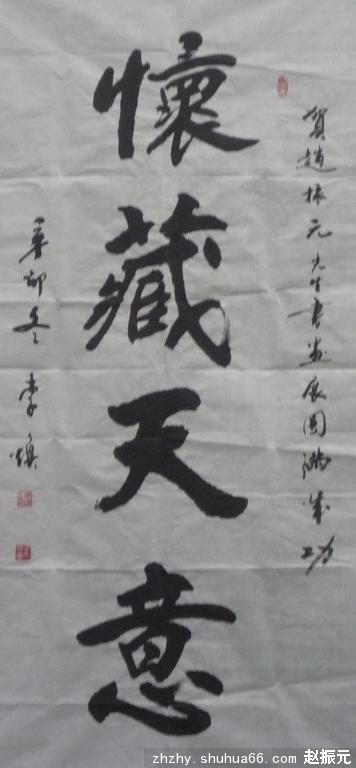 賀趙振元先生書画展圓满成功
懷藏天意
辛卯冬 李煥
zhzhy.shuhua66.com 赵振元